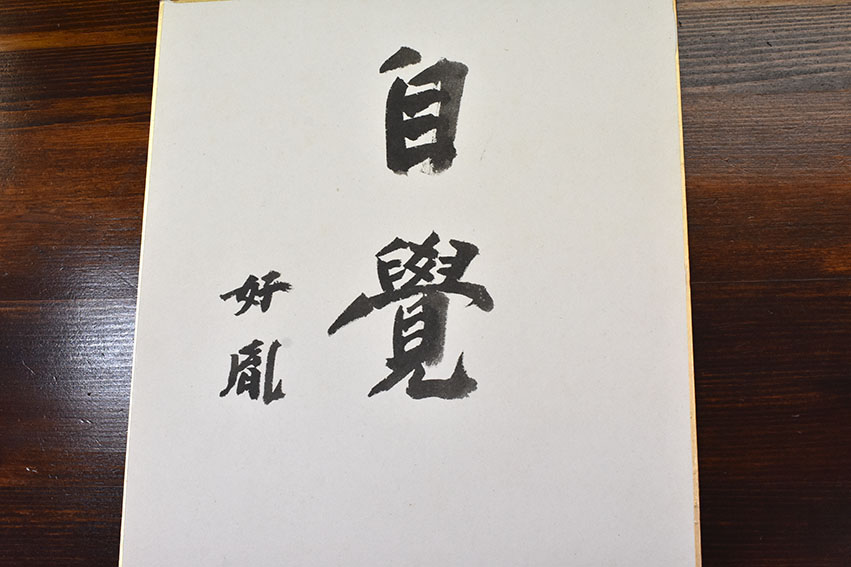 自覺
好胤